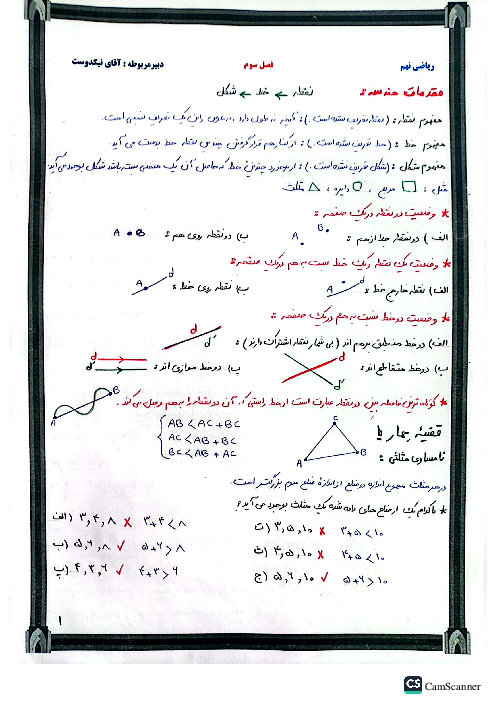 ریاضی نهم فصل سوم دبیر مربوطه : آقای نیکدوست
مقدمات هندسه : نقطه ← خط ← شکل
مفهوم نقطه : (نقطه تعریف نشده است.) : آنچه نه طول دارد ، نه عرض این یک تعریف نسبی است.
مفهوم خط : (خط تعریف نشده است.) : از کنار هم قرار گرفتن چندین نقطه خط بدست می آید.
مفهوم شکل : (شکل تعریف نشده است.) : از برخورد چندین خط که حاصل آن یک منحنی بسته باشد شکل بوجود می آید.
مثل : □ مربع , ○ دایره , △ مثلث
* وضعیت دو نقطه در یک صفحه :
الف) دو نقطه جدا از هم : A B ب) دو نقطه روی هم : A B
* وضعیت یک نقطه و یک خط نسبت به هم در یک صفحه :
الف) نقطه خارج خط : A d ب) نقطه روی خط : A d
* وضعیت دو خط نسبت به هم در یک صفحه :
الف) دو خط منطبق بر هم اند (بی شمار نقطه اشتراک دارند) : d d'
ب) دو خط متقاطع اند : d d' ب) دو خط موازی اند : d d'
* کوتاه ترین فاصله بین دو نقطه عبارت است از خط راستی که آن دو نقطه را به هم وصل می کند.
A B
قضیه حمار یا
نامساوی مثلثی :
A B C
AB < AC + BC
AC < AB + BC
BC < AB + AC
در هر مثلث مجموع اندازه دو ضلع از اندازۀ ضلع سوم بزرگتر است.
* با کدام یک از ضلع های داده شده یک مثلث بوجود می آید؟
الف) ۳,۴,۸ × ۳+۴<۸ ت) ۳,۵,۱۰ × ۳+۵<۱۰
ب) ۵,۶,۸ ✓ ۵+۶>۸ ث) ۴,۵,۱۰ × ۴+۵<۱۰
پ) ۴,۳,۶ ✓ ۴+۳>۶ ج) ۵,۶,۱۰ ✓ ۵+۶>۱۰
۱
CS CamScanner